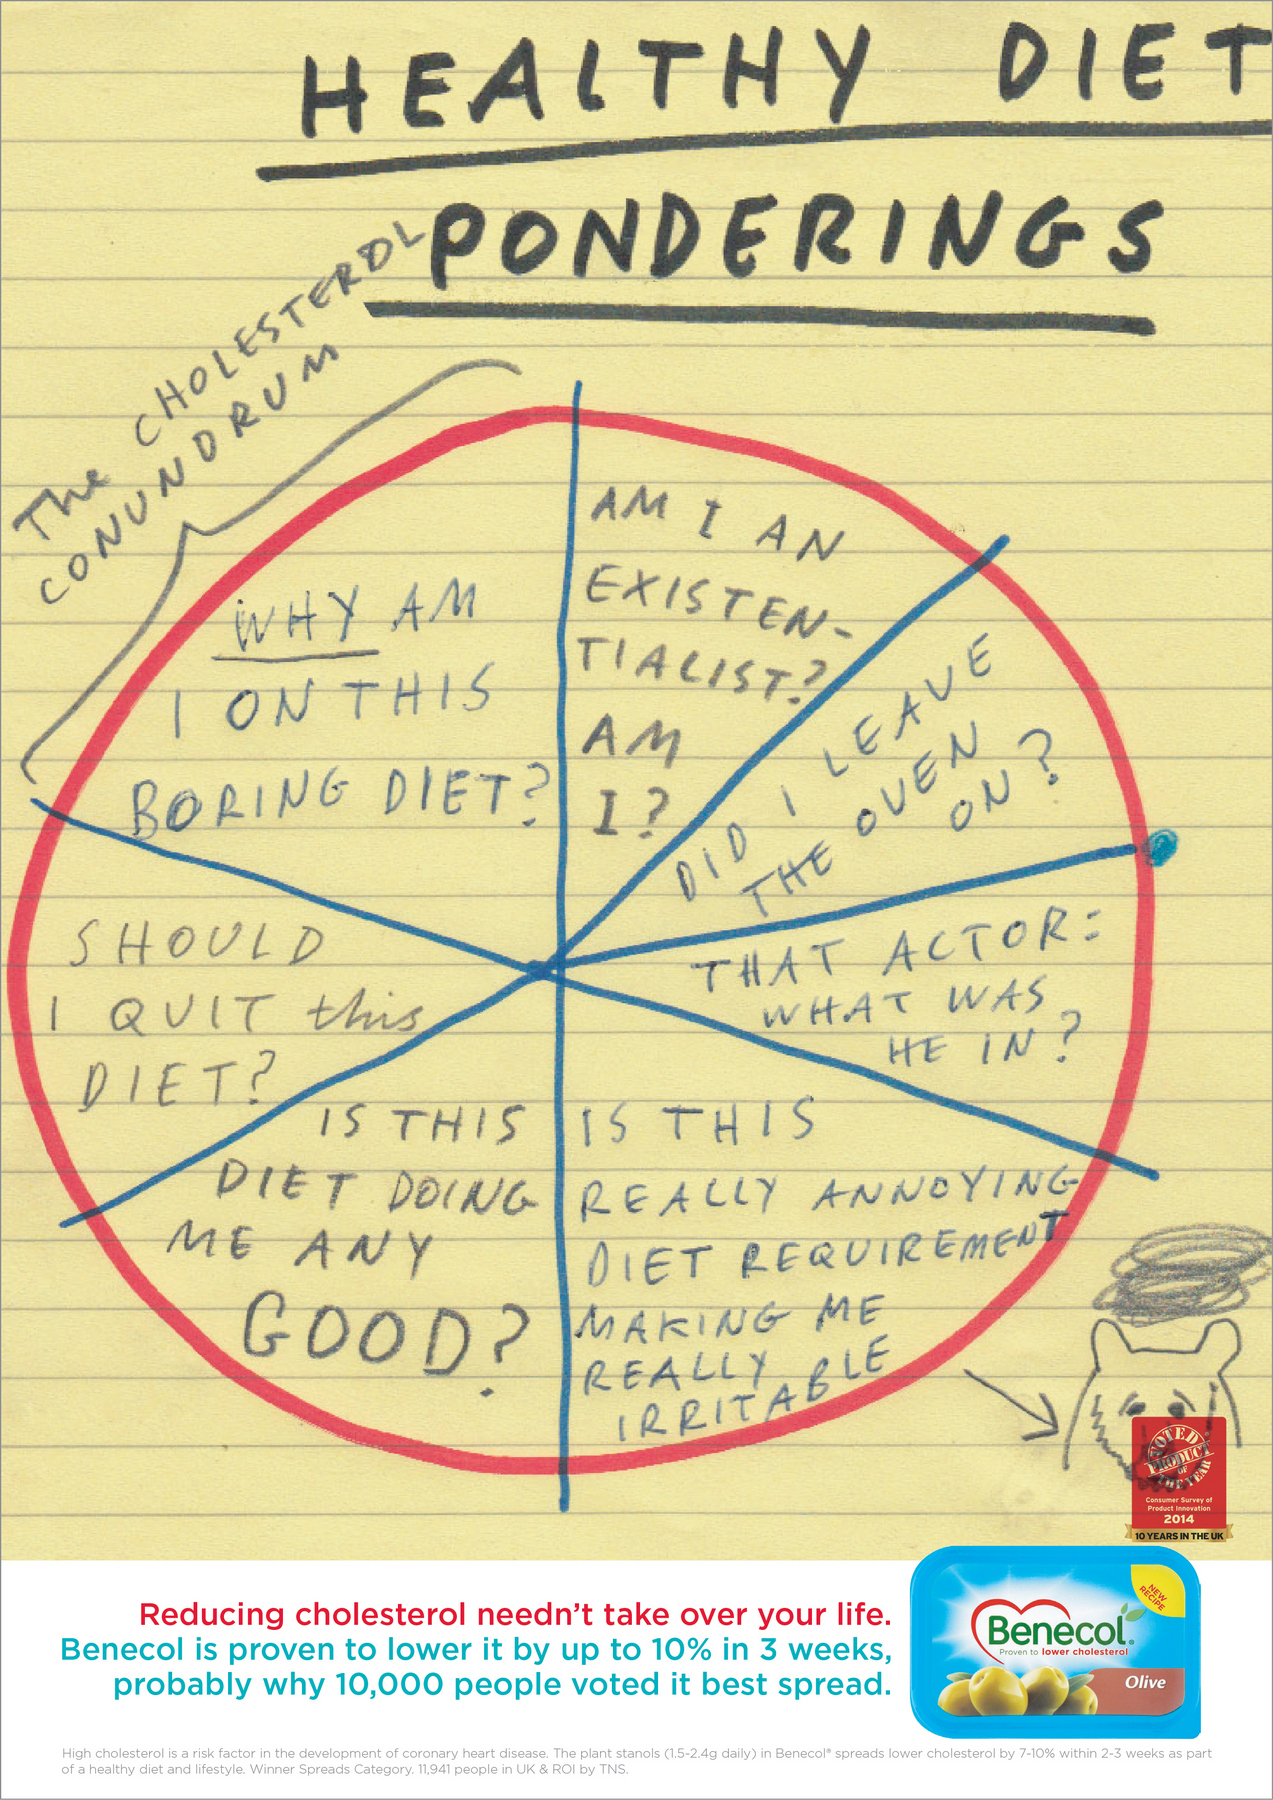 HEALTHY DIET
PONDERINGS
The CHOLESTEROL
CONUNDRUM
AM I AN
EXISTEN-
TIALIST?
AM
I?
DID I LEAVE
THE OVEN
ON?
THAT ACTOR:
WHAT WAS
HE IN?
IS THIS
REALLY ANNOYING
DIET REQUIREMENT
MAKING ME
REALLY
IRRITABLE
IS THIS
DIET DOING
ME ANY
GOOD?
SHOULD
I QUIT this
DIET?
WHY AM
I ON THIS
BORING DIET?
VOTED
PRODUCT
OF
THE YEAR
Consumer Survey of
Product Innovation
2014
10 YEARS IN THE UK
Reducing cholesterol needn't take over your life.
Benecol is proven to lower it by up to 10% in 3 weeks,
probably why 10,000 people voted it best spread.
NEW
RECIPE
Benecol®
Proven to lower cholesterol
Olive
High cholesterol is a risk factor in the development of coronary heart disease. The plant stanols (1.5-2.4g daily) in Benecol® spreads lower cholesterol by 7-10% within 2-3 weeks as part
of a healthy diet and lifestyle. Winner Spreads Category. 11,941 people in UK & ROI by TNS.